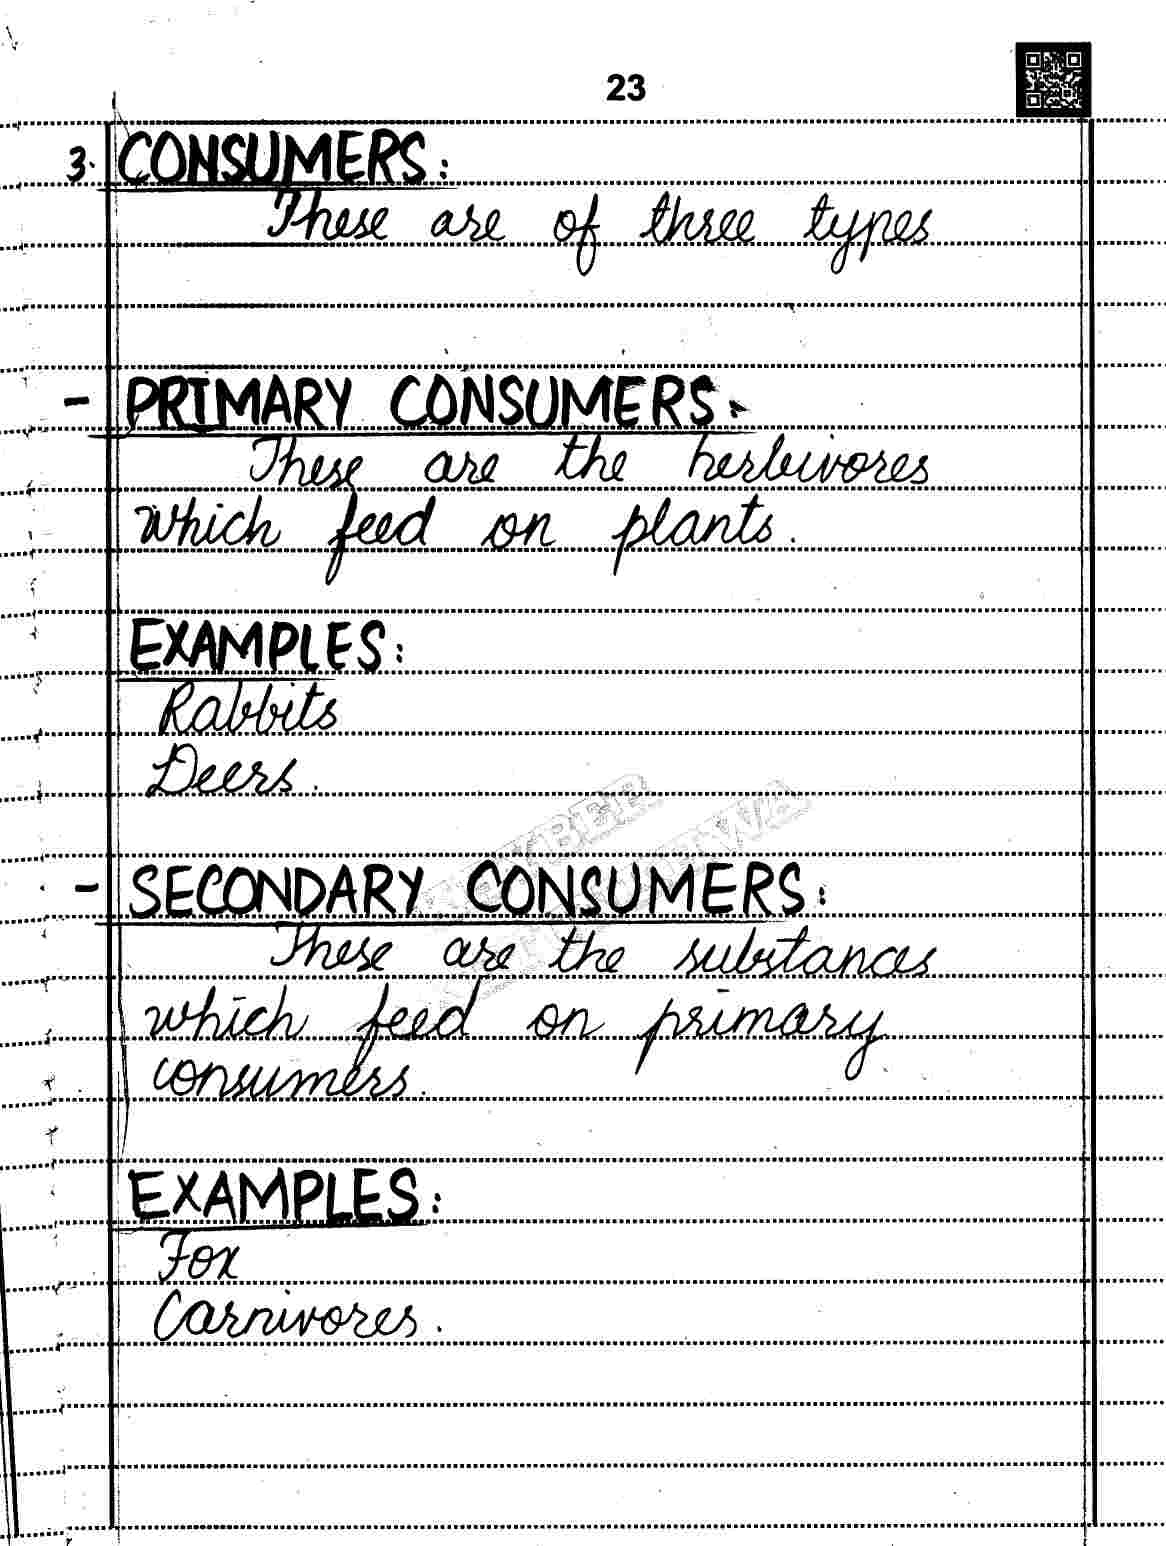 23
3. CONSUMERS:
These are of three types
- PRIMARY CONSUMERS:
These are the herbivores
which feed on plants.
EXAMPLES:
Rabbits
Deers.
- SECONDARY CONSUMERS:
These are the substances
which feed on primary
consumers.
EXAMPLES:
Fox
Carnivores.